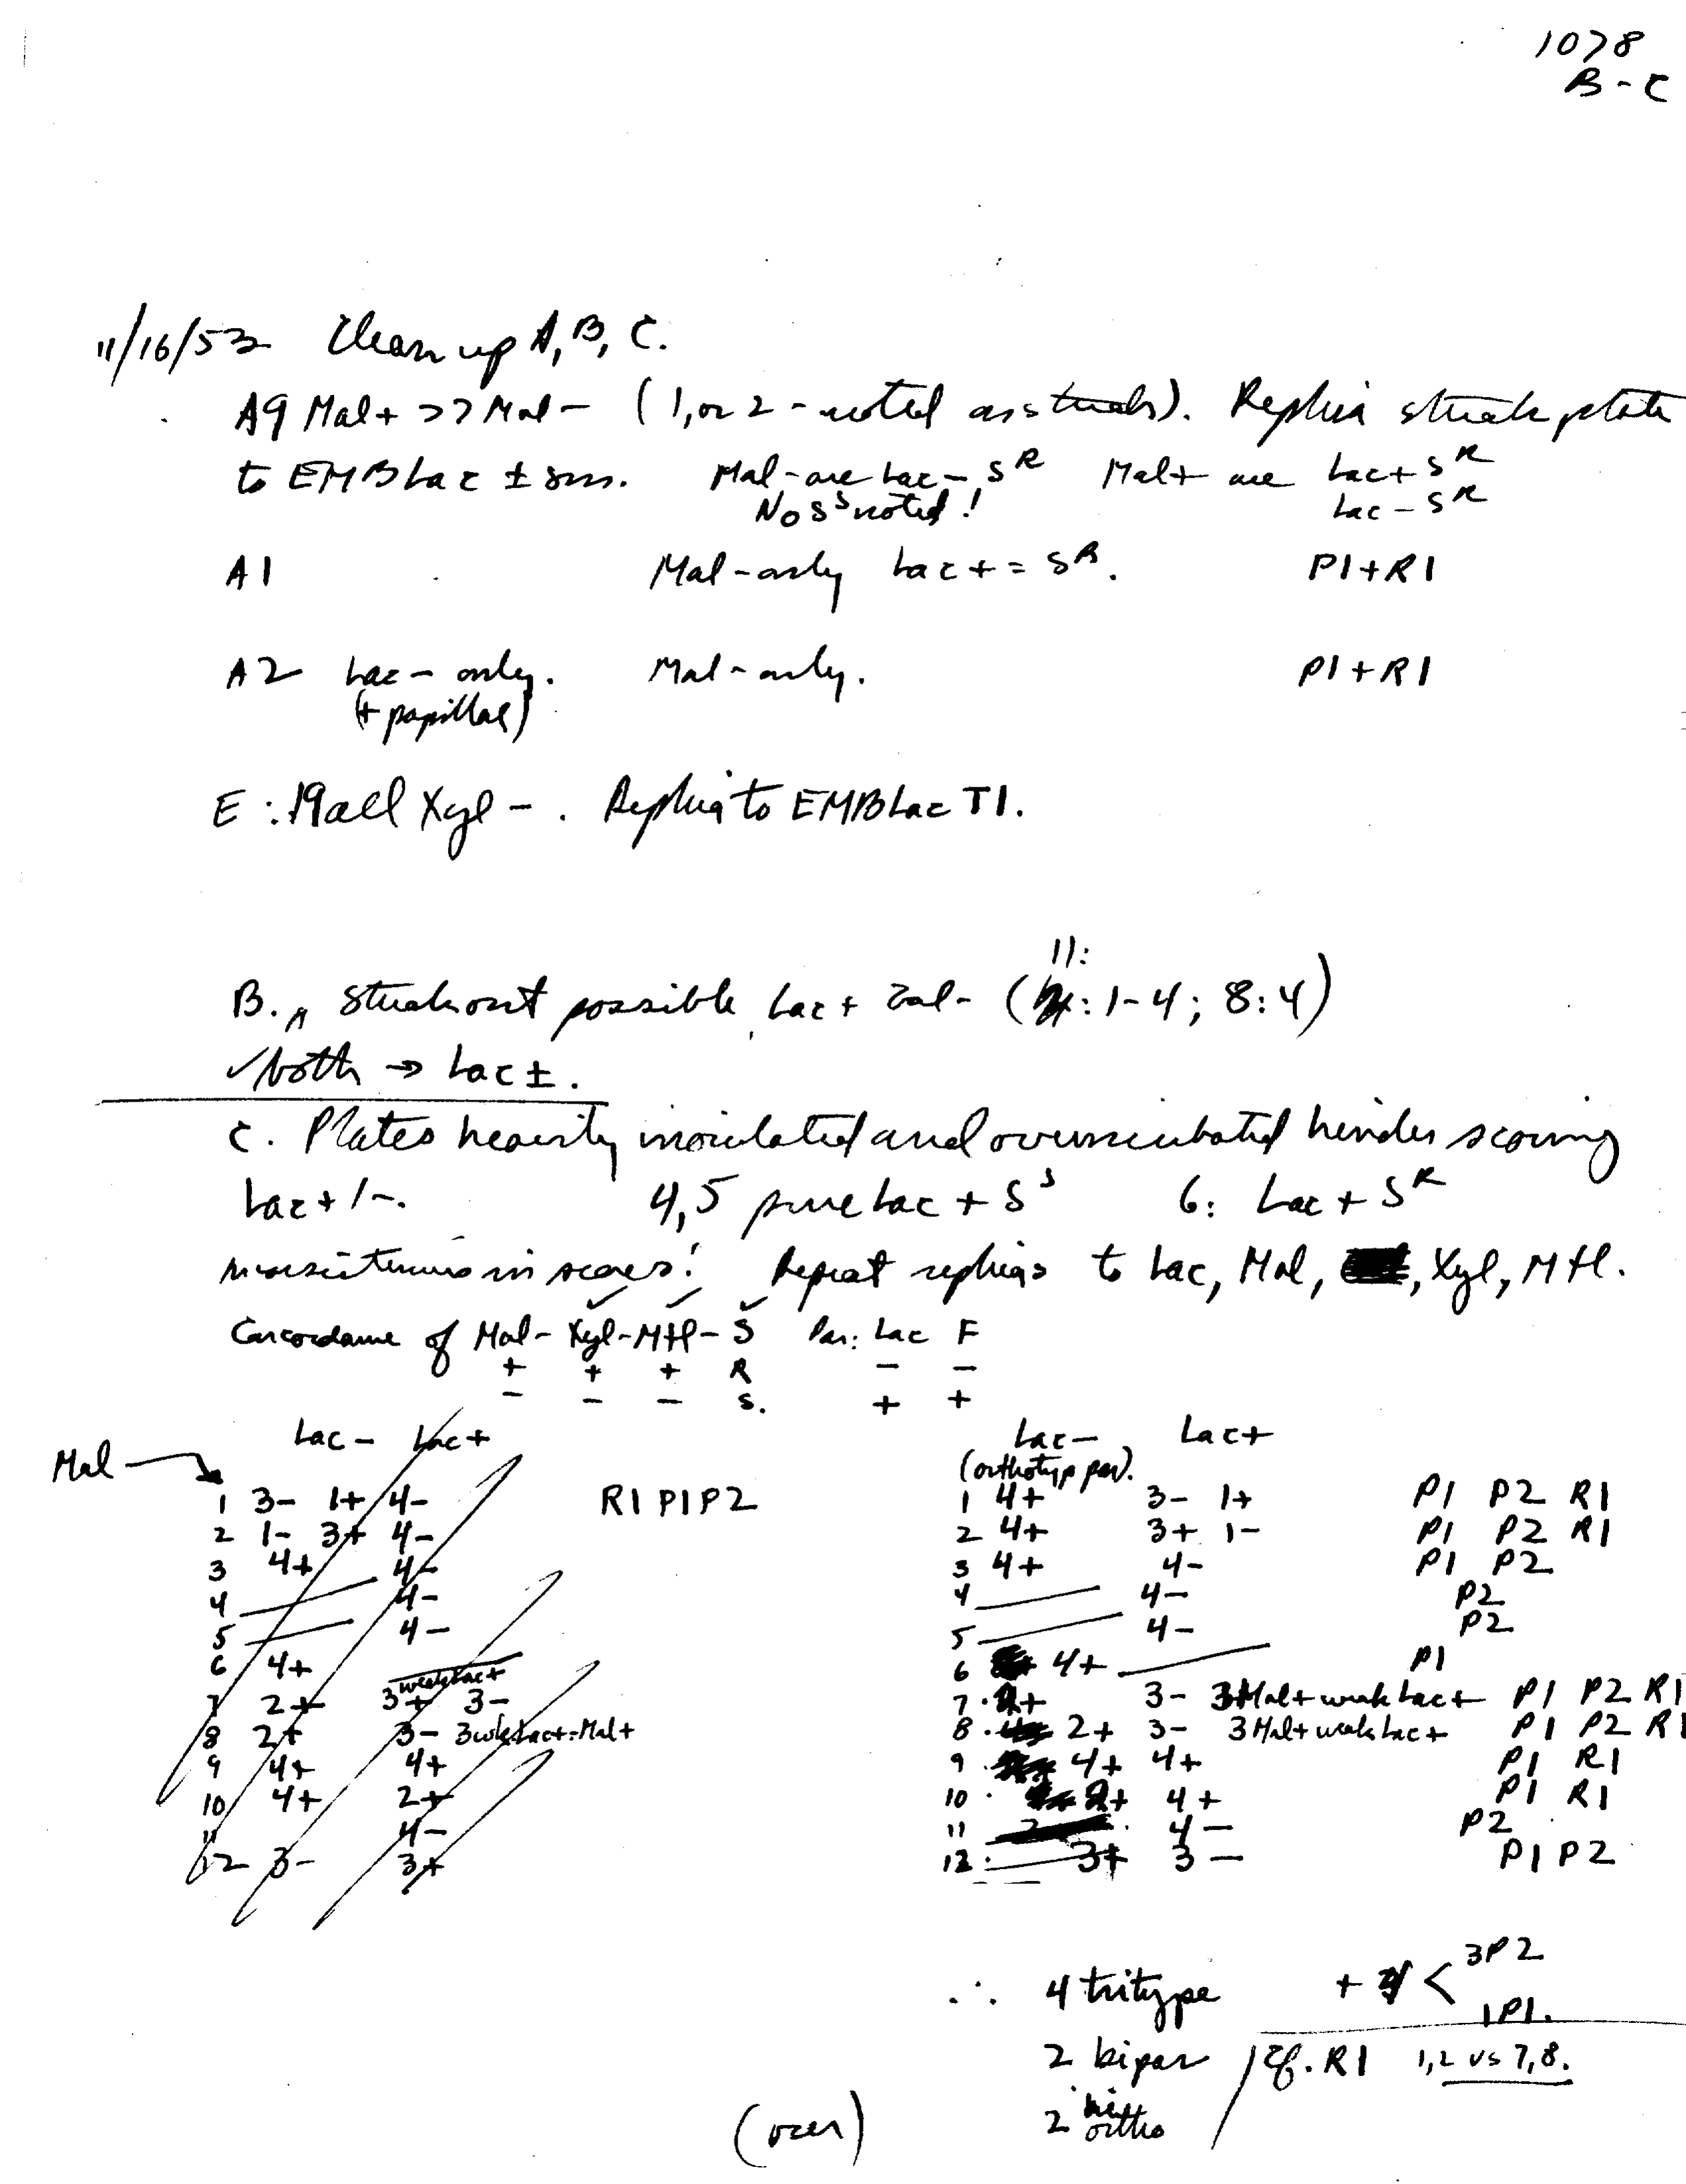 1078
B-C
11/16/53 Clean up A, B, C.
A9 Mal+ >> Mal- (1, or 2 - noted as streaks). Replica streak plate
to EMB Lac ± sm. Mal- are Lac- S^R Mal+ are Lac+ S^R
No S^s noted! Lac- S^R
A1 Mal- only Lac+ = S^R. P1+R1
A2 Lac- only. Mal- only. P1+R1
(+ papillae)
E: 19 all Xyl-. Replica to EMB Lac T1.
11:
B. Streak out possible Lac+ Mal- (: 1-4; 8:4)
✓ both → Lac±.
C. Plates heavily inoculated and overincubated hinder scoring
Lac+/-. 4,5 pure Lac+ S^s 6: Lac+ S^R
inconsistencies in scores! Repeat replicas to Lac, Mal, Xyl, Mtl.
✓ ✓ ✓
Concordance of Mal- Xyl- Mtl- S Par: Lac F
+ + + R - -
- - - S. + +
Lac- Lac+
Mal →
1 3- 1+ 4- R1 P1 P2
2 1- 3+ 4-
3 4+ 4-
4 — 4-
5 — 4-
6 4+ —
weak Lac+
7 2+ 3+ 3-
8 2+ 3- 3 wk Lac+ = Mal+
9 4+ 4+
10 4+ 2+
11 4-
12 3- 3+
Lac- Lac+
(orthotyp par).
1 4+ 3- 1+ P1 P2 R1
2 4+ 3+ 1- P1 P2 R1
3 4+ 4- P1 P2
4 — 4- P2
5 — 4- P2
6 4+ — P1
7. 2+ 3- 3 Mal+ weak Lac+ P1 P2 R1
8. 2+ 3- 3 Mal+ weak Lac+ P1 P2 R1
9 4+ 4+ P1 R1
10. 2+ 4+ P1 R1
11 4- P2
12. 3+ 3- P1 P2
∴ 4 tritype + 4 < 3P2
1P1.
2 bipar / cf. R1 1,2 vs 7,8.
2 ortho
(over)